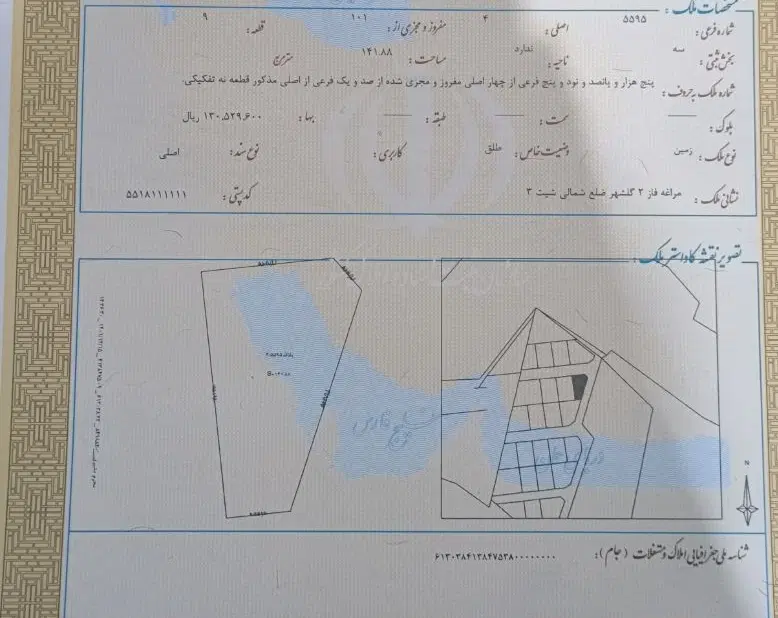 مشخصات ملک :
شماره فرعی : ۵۵۹۵ اصلی : ۴ مفروز و مجزی از : ۱۰۱ قطعه : ۹
بخش ثبتی : سه ناحیه : ندارد مساحت : ۱۴۱.۸۸ مترمربع
شماره ملک به حروف : پنج هزار و پانصد و نود و پنج فرعی از چهار اصلی مفروز و مجزی شده از صد و یک فرعی از اصلی مذکور قطعه نه تفکیکی.
بلوک : سمت : طبقه : بها : ۱۳۰,۵۲۹,۶۰۰ ریال
نوع ملک : زمین وضعیت خاص : طلق کاربری : نوع سند : اصلی
نشانی ملک : مراغه فاز ۲ گلشهر ضلع شمالی شیت ۳ کدپستی : ۵۵۱۸۱۱۱۱۱۱
تصویر نقشه کاداستر ملک :
خلیج فارس
N
شناسه ملی جغرافیایی املاک و مستغلات (جام) : ۶۱۳۰۳۸۴۱۳۸۴۷۵۳۸۰۰۰۰۰۰۰۰